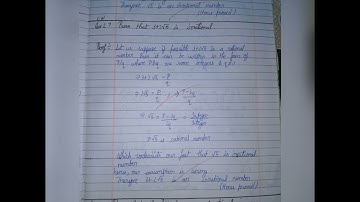 Therefore √5 is an irrational number
(Hence proved)
Prove that 3+2√5 is irrational.
Proof: Let us suppose if possible 3+2√5 is a rational
number then it can be written in the form of
P/q where P & q are some integers & q ≠ 0
⇒ 3+2√5 = P/q
⇒ 2√5 = P/q - 3
⇒ √5 = = Integer/Integer
⇒ √5 is rational number
Which contradicts our fact that √5 is irrational
number
Hence, our assumption is wrong
Therefore 3+2√5 is an irrational number
(Hence proved)